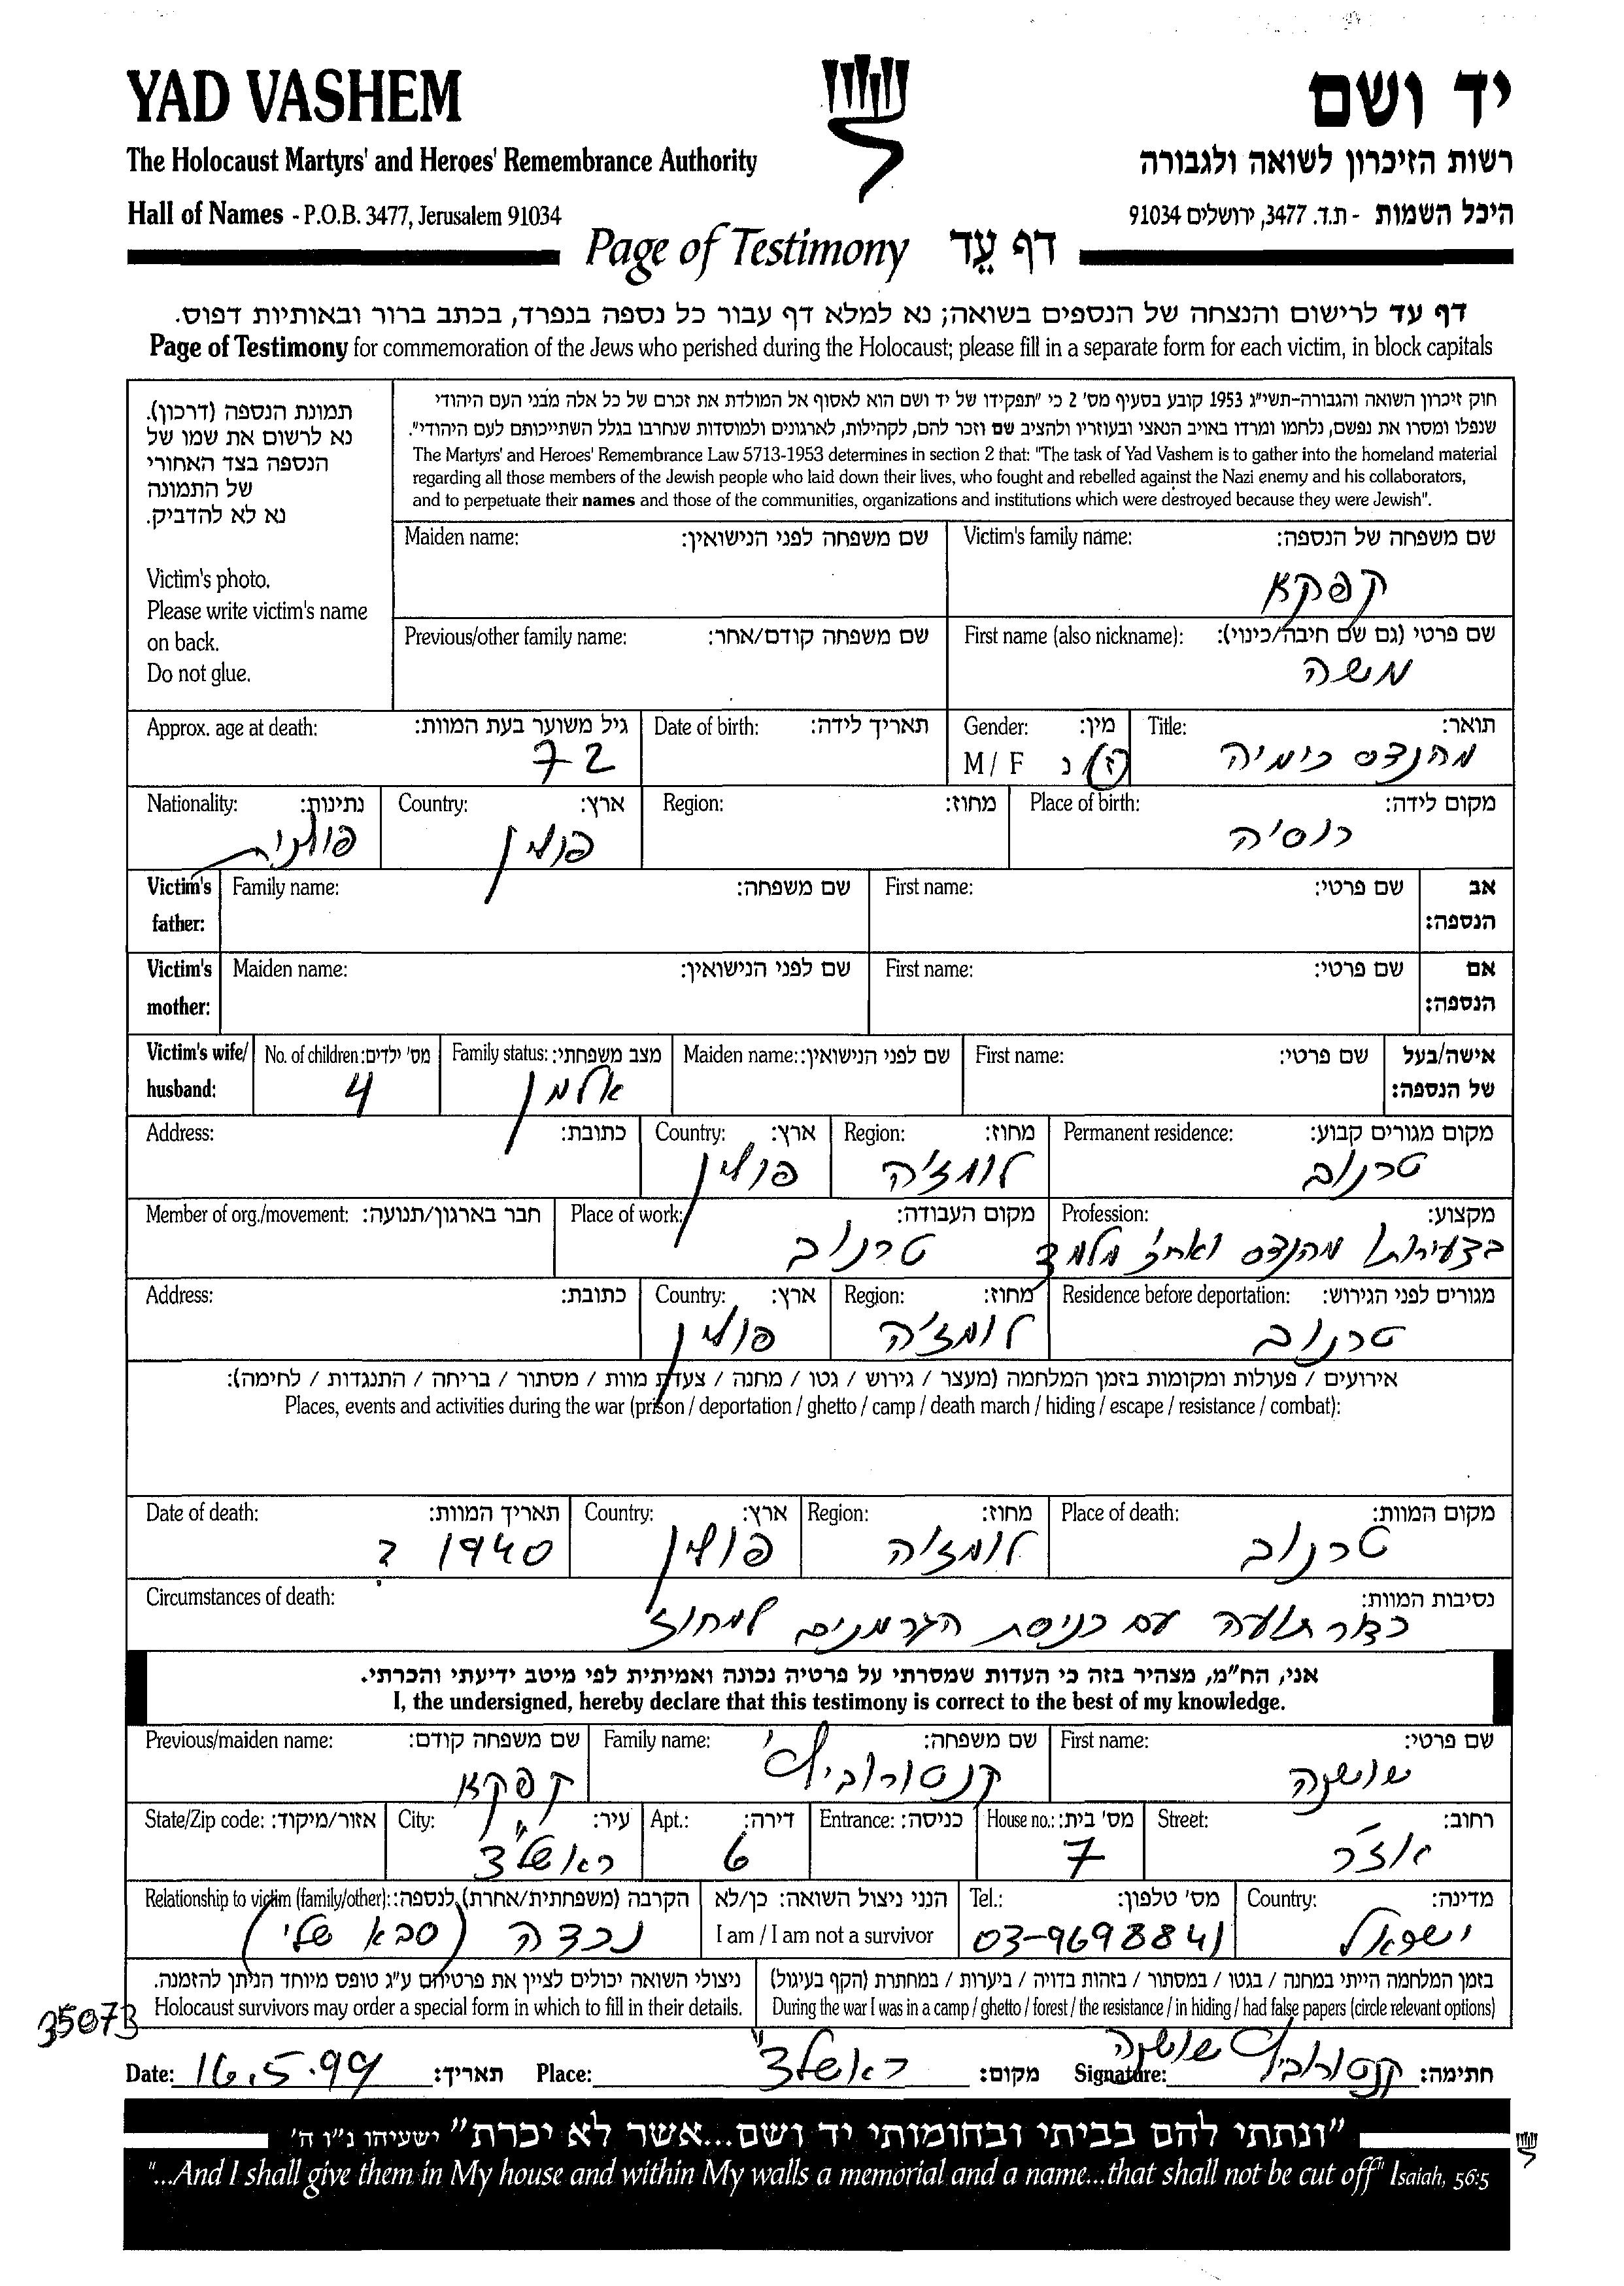 YAD VASHEM
יד ושם
The Holocaust Martyrs' and Heroes' Remembrance Authority
רשות הזיכרון לשואה ולגבורה
Hall of Names - P.O.B. 3477, Jerusalem 91034
היכל השמות - ת.ד. 3477, ירושלים 91034
Page of Testimony דף עֵד
דף עד לרישום והנצחה של הנספים בשואה; נא למלא דף עבור כל נספה בנפרד, בכתב ברור ובאותיות דפוס.
Page of Testimony for commemoration of the Jews who perished during the Holocaust; please fill in a separate form for each victim, in block capitals
תמונת הנספה (דרכון).
נא לרשום את שמו של
הנספה בצד האחורי
של התמונה
נא לא להדביק.
Victim's photo.
Please write victim's name
on back.
Do not glue.
חוק זיכרון השואה והגבורה-תשי"ג 1953 קובע בסעיף מס' 2 כי "תפקידו של יד ושם הוא לאסוף אל המולדת את זכרם של כל אלה מבני העם היהודי
שנפלו ומסרו את נפשם, נלחמו ומרדו באויב הנאצי ובעוזריו ולהציב שם וזכר להם, לקהילות, לארגונים ולמוסדות שנחרבו בגלל השתייכותם לעם היהודי".
The Martyrs' and Heroes' Remembrance Law 5713-1953 determines in section 2 that: "The task of Yad Vashem is to gather into the homeland material
regarding all those members of the Jewish people who laid down their lives, who fought and rebelled against the Nazi enemy and his collaborators,
and to perpetuate their names and those of the communities, organizations and institutions which were destroyed because they were Jewish".
Victim's family name: שם משפחה של הנספה:
קפקא
Maiden name: שם משפחה לפני הנישואין:
First name (also nickname): שם פרטי (גם שם חיבה/כינוי):
משה
Previous/other family name: שם משפחה קודם/אחר:
Title: תואר:
מהנדס כימיה
Gender: מין:
M / F ז / נ
Date of birth: תאריך לידה:
Approx. age at death: גיל משוער בעת המוות:
72
Place of birth: מקום לידה:
רוסיה
Region: מחוז:
Country: ארץ:
פולין
Nationality: נתינות:
פולנית
Victim's father: אב הנספה:
First name: שם פרטי:
Family name: שם משפחה:
Victim's mother: אם הנספה:
First name: שם פרטי:
Maiden name: שם לפני הנישואין:
Victim's wife/ husband: אישה/בעל של הנספה:
First name: שם פרטי:
Maiden name: שם לפני הנישואין:
Family status: מצב משפחתי:
אלמן
No. of children: מס' ילדים:
4
Permanent residence: מקום מגורים קבוע:
טרנוב
Region: מחוז:
לומז'ה
Country: ארץ:
פולין
Address: כתובת:
Profession: מקצוע:
בצעירותו מהנדס ואח"כ מלמד
Place of work: מקום העבודה:
טרנוב
Member of org./movement: חבר בארגון/תנועה:
Residence before deportation: מגורים לפני הגירוש:
טרנוב
Region: מחוז:
לומז'ה
Country: ארץ:
פולין
Address: כתובת:
אירועים / פעולות ומקומות בזמן המלחמה (מעצר / גירוש / גטו / מחנה / צעדת מוות / מסתור / בריחה / התנגדות / לחימה):
Places, events and activities during the war (prison / deportation / ghetto / camp / death march / hiding / escape / resistance / combat):
Place of death: מקום המוות:
טרנוב
Region: מחוז:
לומז'ה
Country: ארץ:
פולין
Date of death: תאריך המוות:
1940 ?
Circumstances of death: נסיבות המוות:
עם כניסת הגרמנים למחוז
אני, הח"מ, מצהיר בזה כי העדות שמסרתי על פרטיה נכונה ואמיתית לפי מיטב ידיעתי והכרתי.
I, the undersigned, hereby declare that this testimony is correct to the best of my knowledge.
First name: שם פרטי:
שושנה
Family name: שם משפחה:
קנטורוביץ'
Previous/maiden name: שם משפחה קודם:
קפקא
Street: רחוב:
House no.: מס' בית:
7
Entrance: כניסה:
Apt.: דירה:
6
City: עיר:
ראשל"צ
State/Zip code: אזור/מיקוד:
Country: מדינה:
ישראל
Tel.: מס' טלפון:
03-9698841
הנני ניצול השואה: כן/לא
I am / I am not a survivor
Relationship to victim (family/other): הקרבה (משפחתית/אחרת) לנספה:
נכדה (סבא שלי)
בזמן המלחמה הייתי במחנה / בגטו / במסתור / בזהות בדויה / ביערות / במחתרת (הקף בעיגול)
During the war I was in a camp / ghetto / forest / the resistance / in hiding / had false papers (circle relevant options)
ניצולי השואה יכולים לציין את פרטיהם ע"ג טופס מיוחד הניתן להזמנה.
Holocaust survivors may order a special form in which to fill in their details.
35073
Date: 16.5.99 תאריך:
Place: ראשל"צ מקום:
Signature: קנטורוביץ' שושנה חתימה:
"ונתתי להם בביתי ובחומותי יד ושם...אשר לא יכרת" ישעיהו נ"ו ה'
"...And I shall give them in My house and within My walls a memorial and a name...that shall not be cut off" Isaiah, 56:5